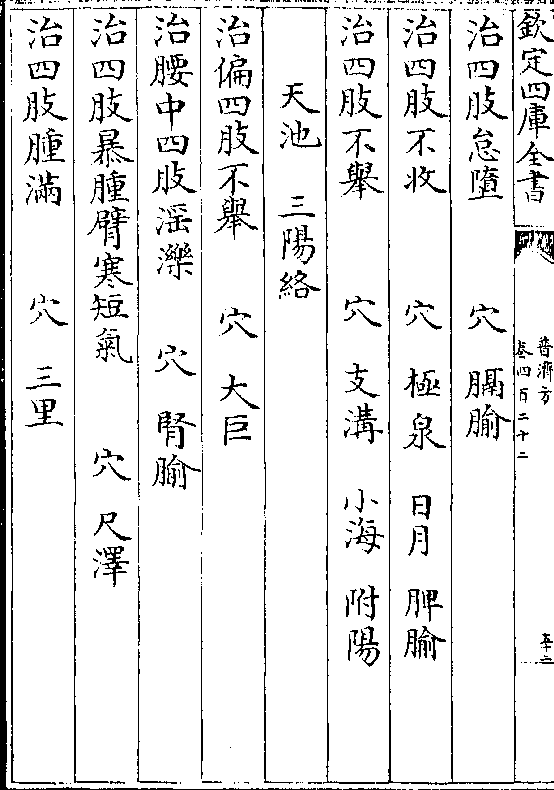 欽定四庫全書
普濟方
卷四百二十二
治四肢怠墮 穴 膈腧
治四肢不收 穴 極泉 日月 脾腧
治四肢不舉 穴 支溝 小海 附陽
天池 三陽絡
治偏四肢不舉 穴 大巨
治腰中四肢滛濼 穴 腎腧
治四肢暴腫臂寒短氣 穴 尺澤
治四肢腫滿 穴 三里